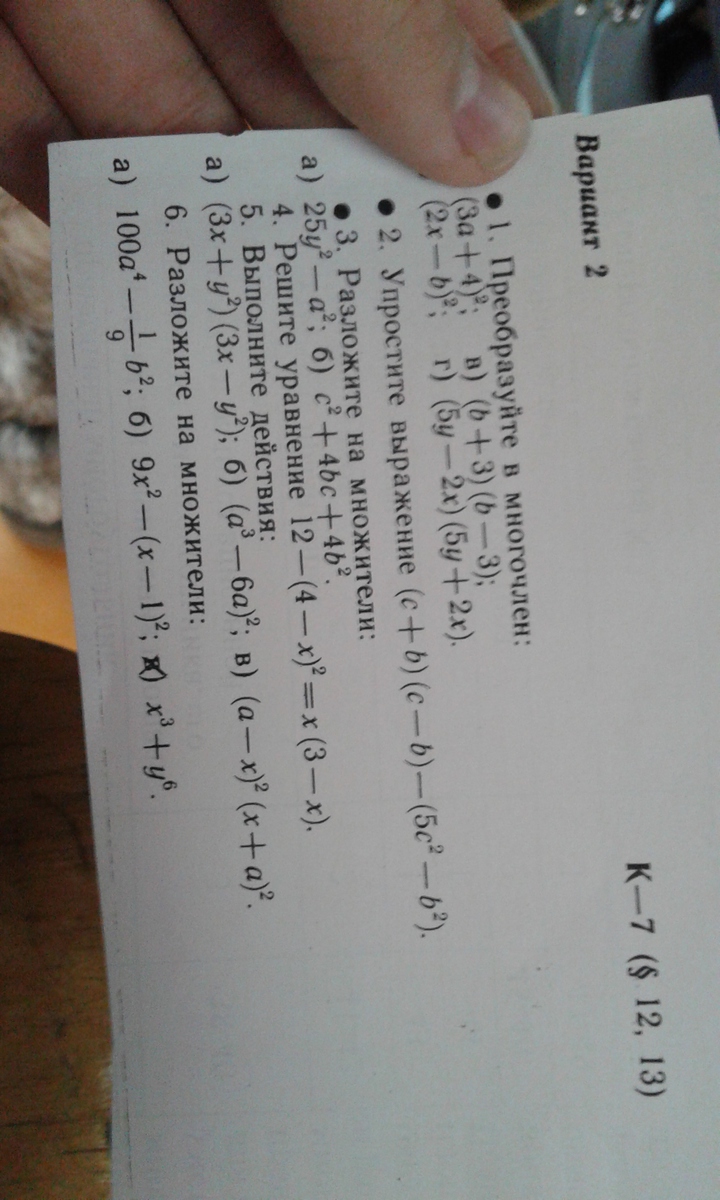 Вариант 2
К—7 (§ 12, 13)
● 1. Преобразуйте в многочлен:
(3a + 4)²; в) (b + 3) (b — 3);
(2x — b)²; г) (5y — 2x) (5y + 2x).
● 2. Упростите выражение (c + b) (c — b) — (5c² — b²).
● 3. Разложите на множители:
а) 25y² — a²; б) c² + 4bc + 4b².
4. Решите уравнение 12 — (4 — x)² = x (3 — x).
5. Выполните действия:
а) (3x + y²) (3x — y²); б) (a³ — 6a)²; в) (a — x)² (x + a)².
6. Разложите на множители:
а) 100a⁴ — 1/9 b²; б) 9x² — (x — 1)²; в) x³ + y⁶.